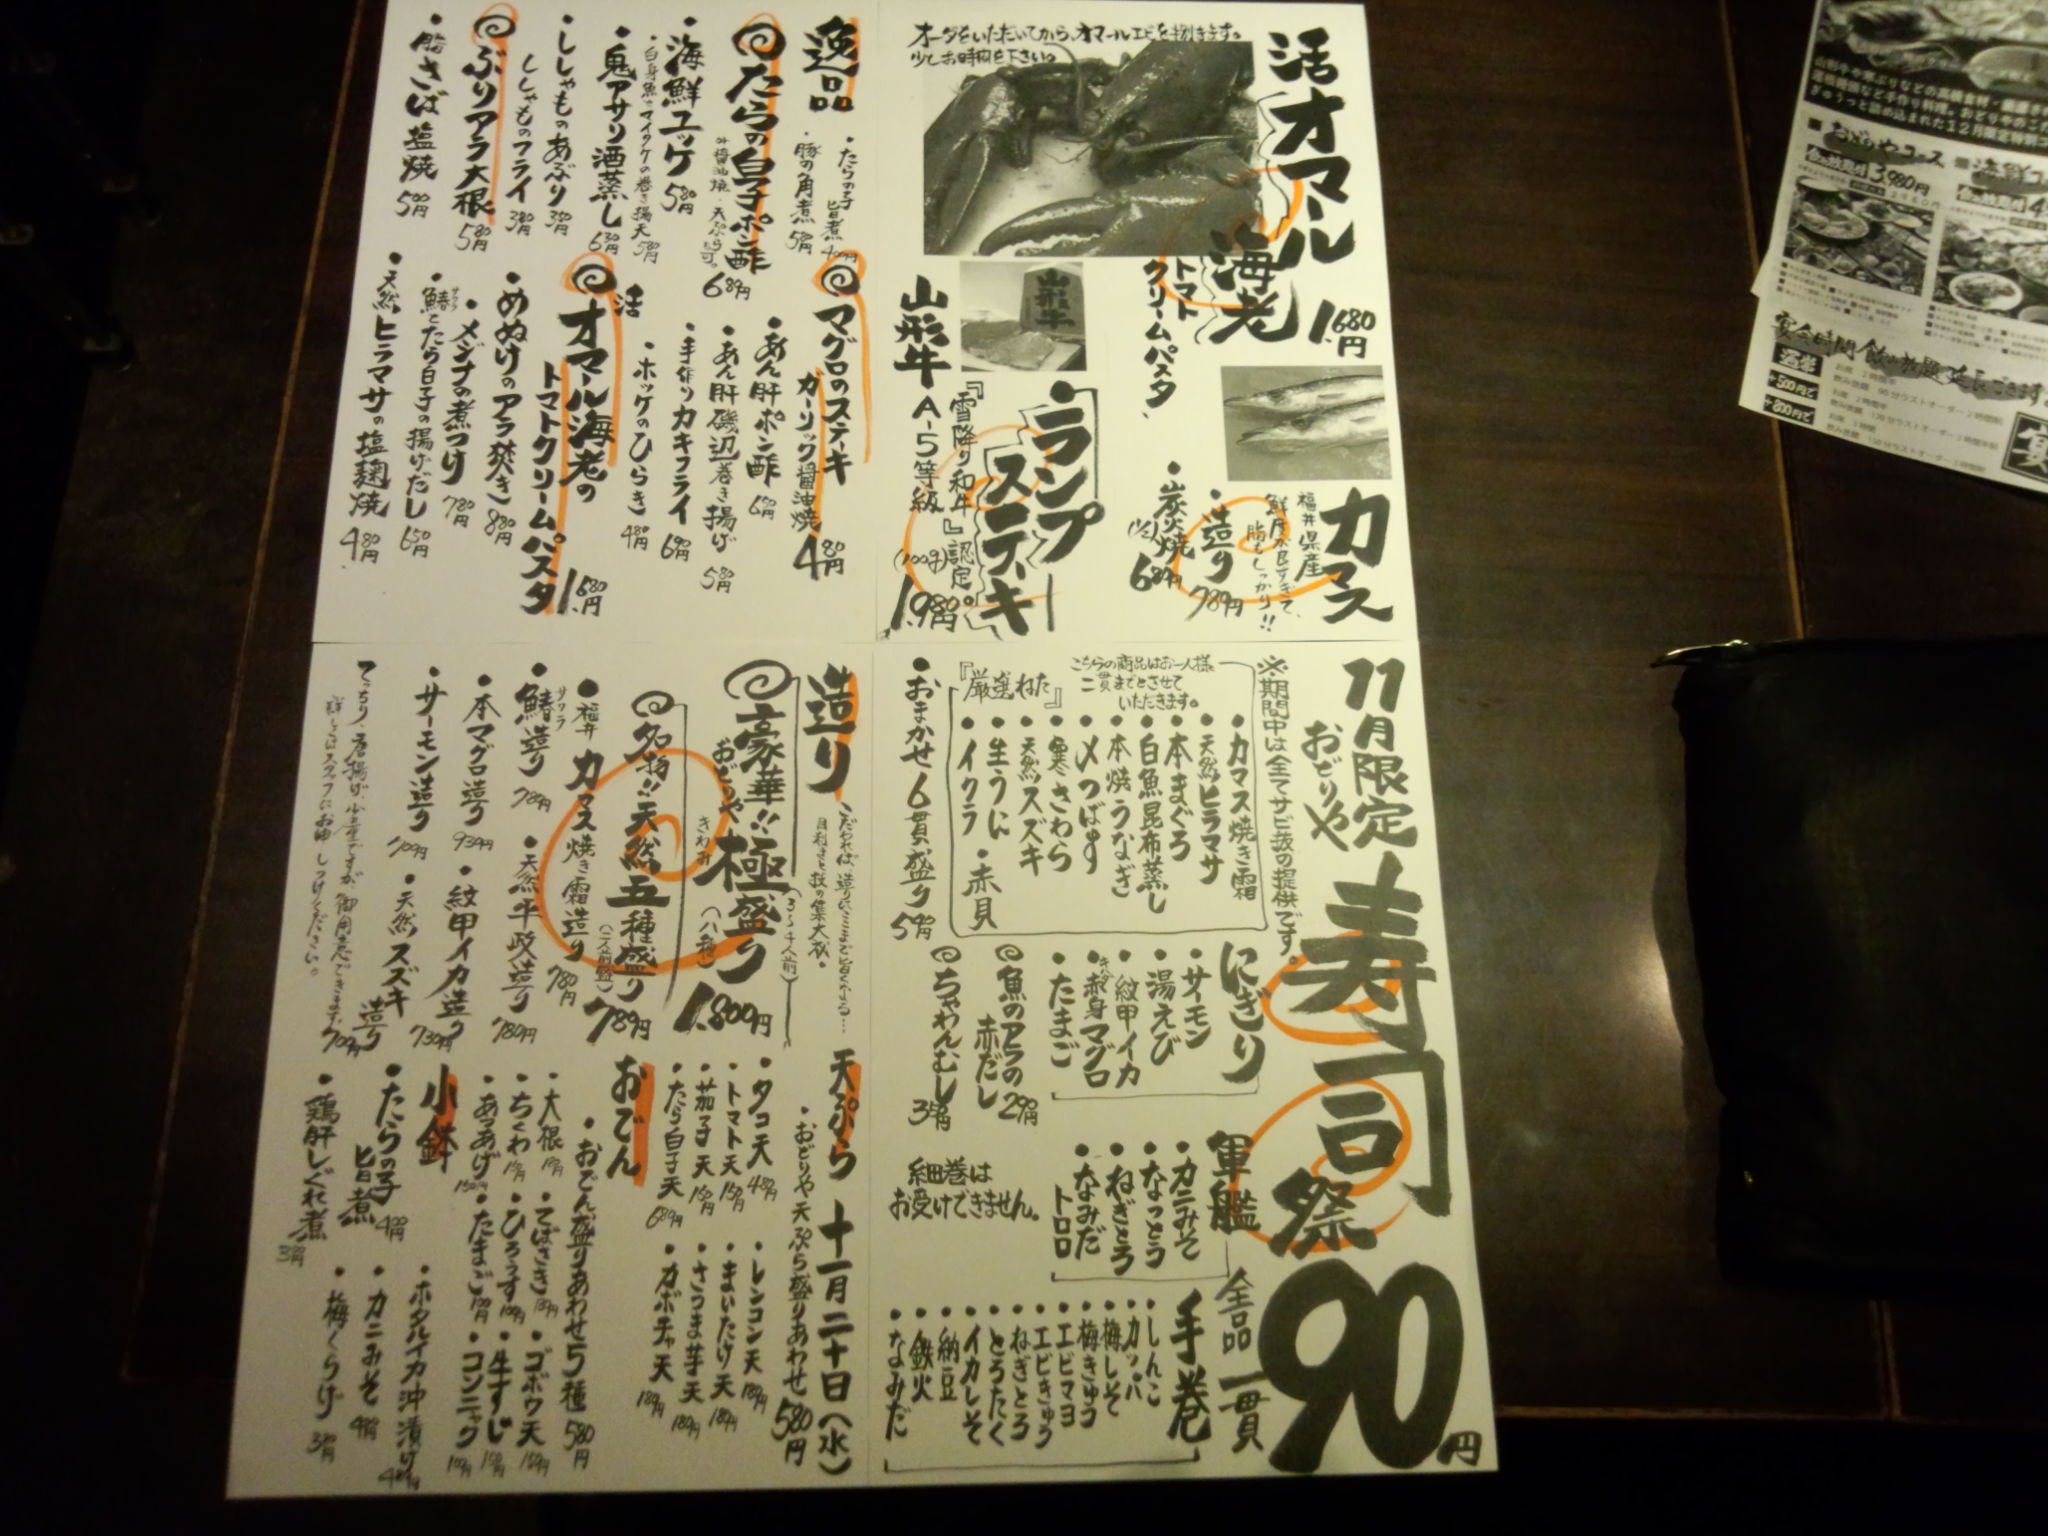 活オマール海老
トマト
クリームパスタ
1,680円
オーダをいただいてから、オマールエビを捌きます。
少しお時間を下さい。
カマス
福井県産
鮮度が良すぎて、
脂もしっかり!!
・造り 789円
・炭火焼 689円
ランプ
ステーキ
『雪降り和牛』認定。
山形牛 A-5等級
(100g) 1,980円
山形牛
逸品
・たらの子旨煮 400円
・豚の角煮 580円
たらの白子ポン酢 689円
※醤油焼・天ぷら可。
海鮮ユッケ 580円
・白身魚とマイタケの巻き揚天 580円
・鬼アサリ酒蒸し 630円
・ししゃものあぶり 380円
・ししゃものフライ 380円
ぶりアラ大根 580円
・脂さば塩焼 500円
マグロのステーキ
ガーリック醤油焼 480円
・あん肝ポン酢 650円
・あん肝磯辺巻き揚げ 580円
・手作りカキフライ 690円
・ホッケのひらき 480円
活
オマール海老の
トマトクリームパスタ 1,680円
・めぬけのアラ焚き 880円
・メジナの煮つけ 780円
・鰆とたら白子の揚げだし 650円
サワラ
・天然ヒラマサの塩麹焼 480円
11月限定
おどりや
寿司祭
全品一貫
90円
※期間中は全てサビ抜の提供です。
こちらの商品はお一人様
二貫までとさせて
いただきます。
『厳選ねた』
・カマス焼き霜
・天然ヒラマサ
・本まぐろ
・白魚昆布蒸し
・本焼うなぎ
・〆つばす
・寒さわら
・天然スズキ
・生うに
・イクラ ・赤貝
・おまかせ6貫盛り 590円
にぎり
・サーモン
・湯えび
・紋甲イカ
・赤身マグロ
キハダ
・たまご
魚のアラの
赤だし 290円
ちゃわんむし 380円
軍艦
・カニみそ
・なっとう
・ねぎとろ
・なみだ
トロロ
細巻は
お受けできません。
手巻
・しんこ
・カッパ
・梅しそ
・梅きゅう
・エビマヨ
・エビきゅう
・ねぎとろ
・とろたく
・イカしそ
・納豆
・鉄火
・なみだ
造り
こだわれば、造りはここまで旨くなる…
目利きと技の集大成。
豪華!!
おどりや
極盛り
きわみ
(3〜4人前)
(八種) 1,809円
名物!!天然五種盛り
(二人前盛) 789円
・福井
カマス焼き霜造り 780円
・鰆造り 789円
サワラ
・本マグロ造り 939円
・サーモン造り 700円
・天然平政造り 780円
・紋甲イカ造り 730円
・天然スズキ造り 700円
てっちり、唐揚げ、少量ですが、御用意できます。
詳しくはスタッフにお申しつけください。
天ぷら
・おどりや天ぷら盛りあわせ 580円
・タコ天 480円
・トマト天 150円
・茄子天 150円
・たら白子天 689円
・レンコン天 189円
・まいたけ天 189円
・さつま芋天 189円
・カボチャ天 189円
おでん
・おでん盛りあわせ5種 580円
・大根
・ちくわ
・あつあげ
・てばさき
・ひろうす
・たまご
・ゴボウ天
・牛すじ
・コンニャク
小鉢
・たらの子旨煮 400円
・鶏肝しぐれ煮 380円
・ホタルイカ沖漬け
・カニみそ
・梅くらげ
十一月二十日(水)
おどりやコース
3,980円
宴会時間